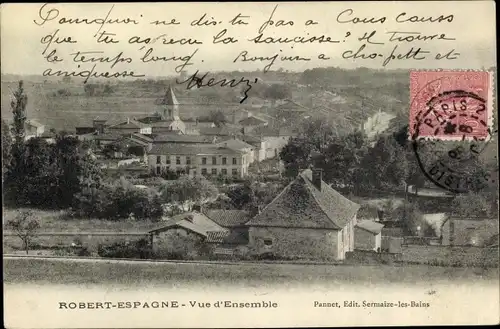 Pourquoi ne dis-tu pas à Cous couss
que tu as reçu la saucisse? Il trouve
le temps long. Bonjour à Cho-pett et
Henry
ROBERT-ESPAGNE - Vue d'Ensemble
Pannet, Edit. Sermaize-les-Bains
PARIS